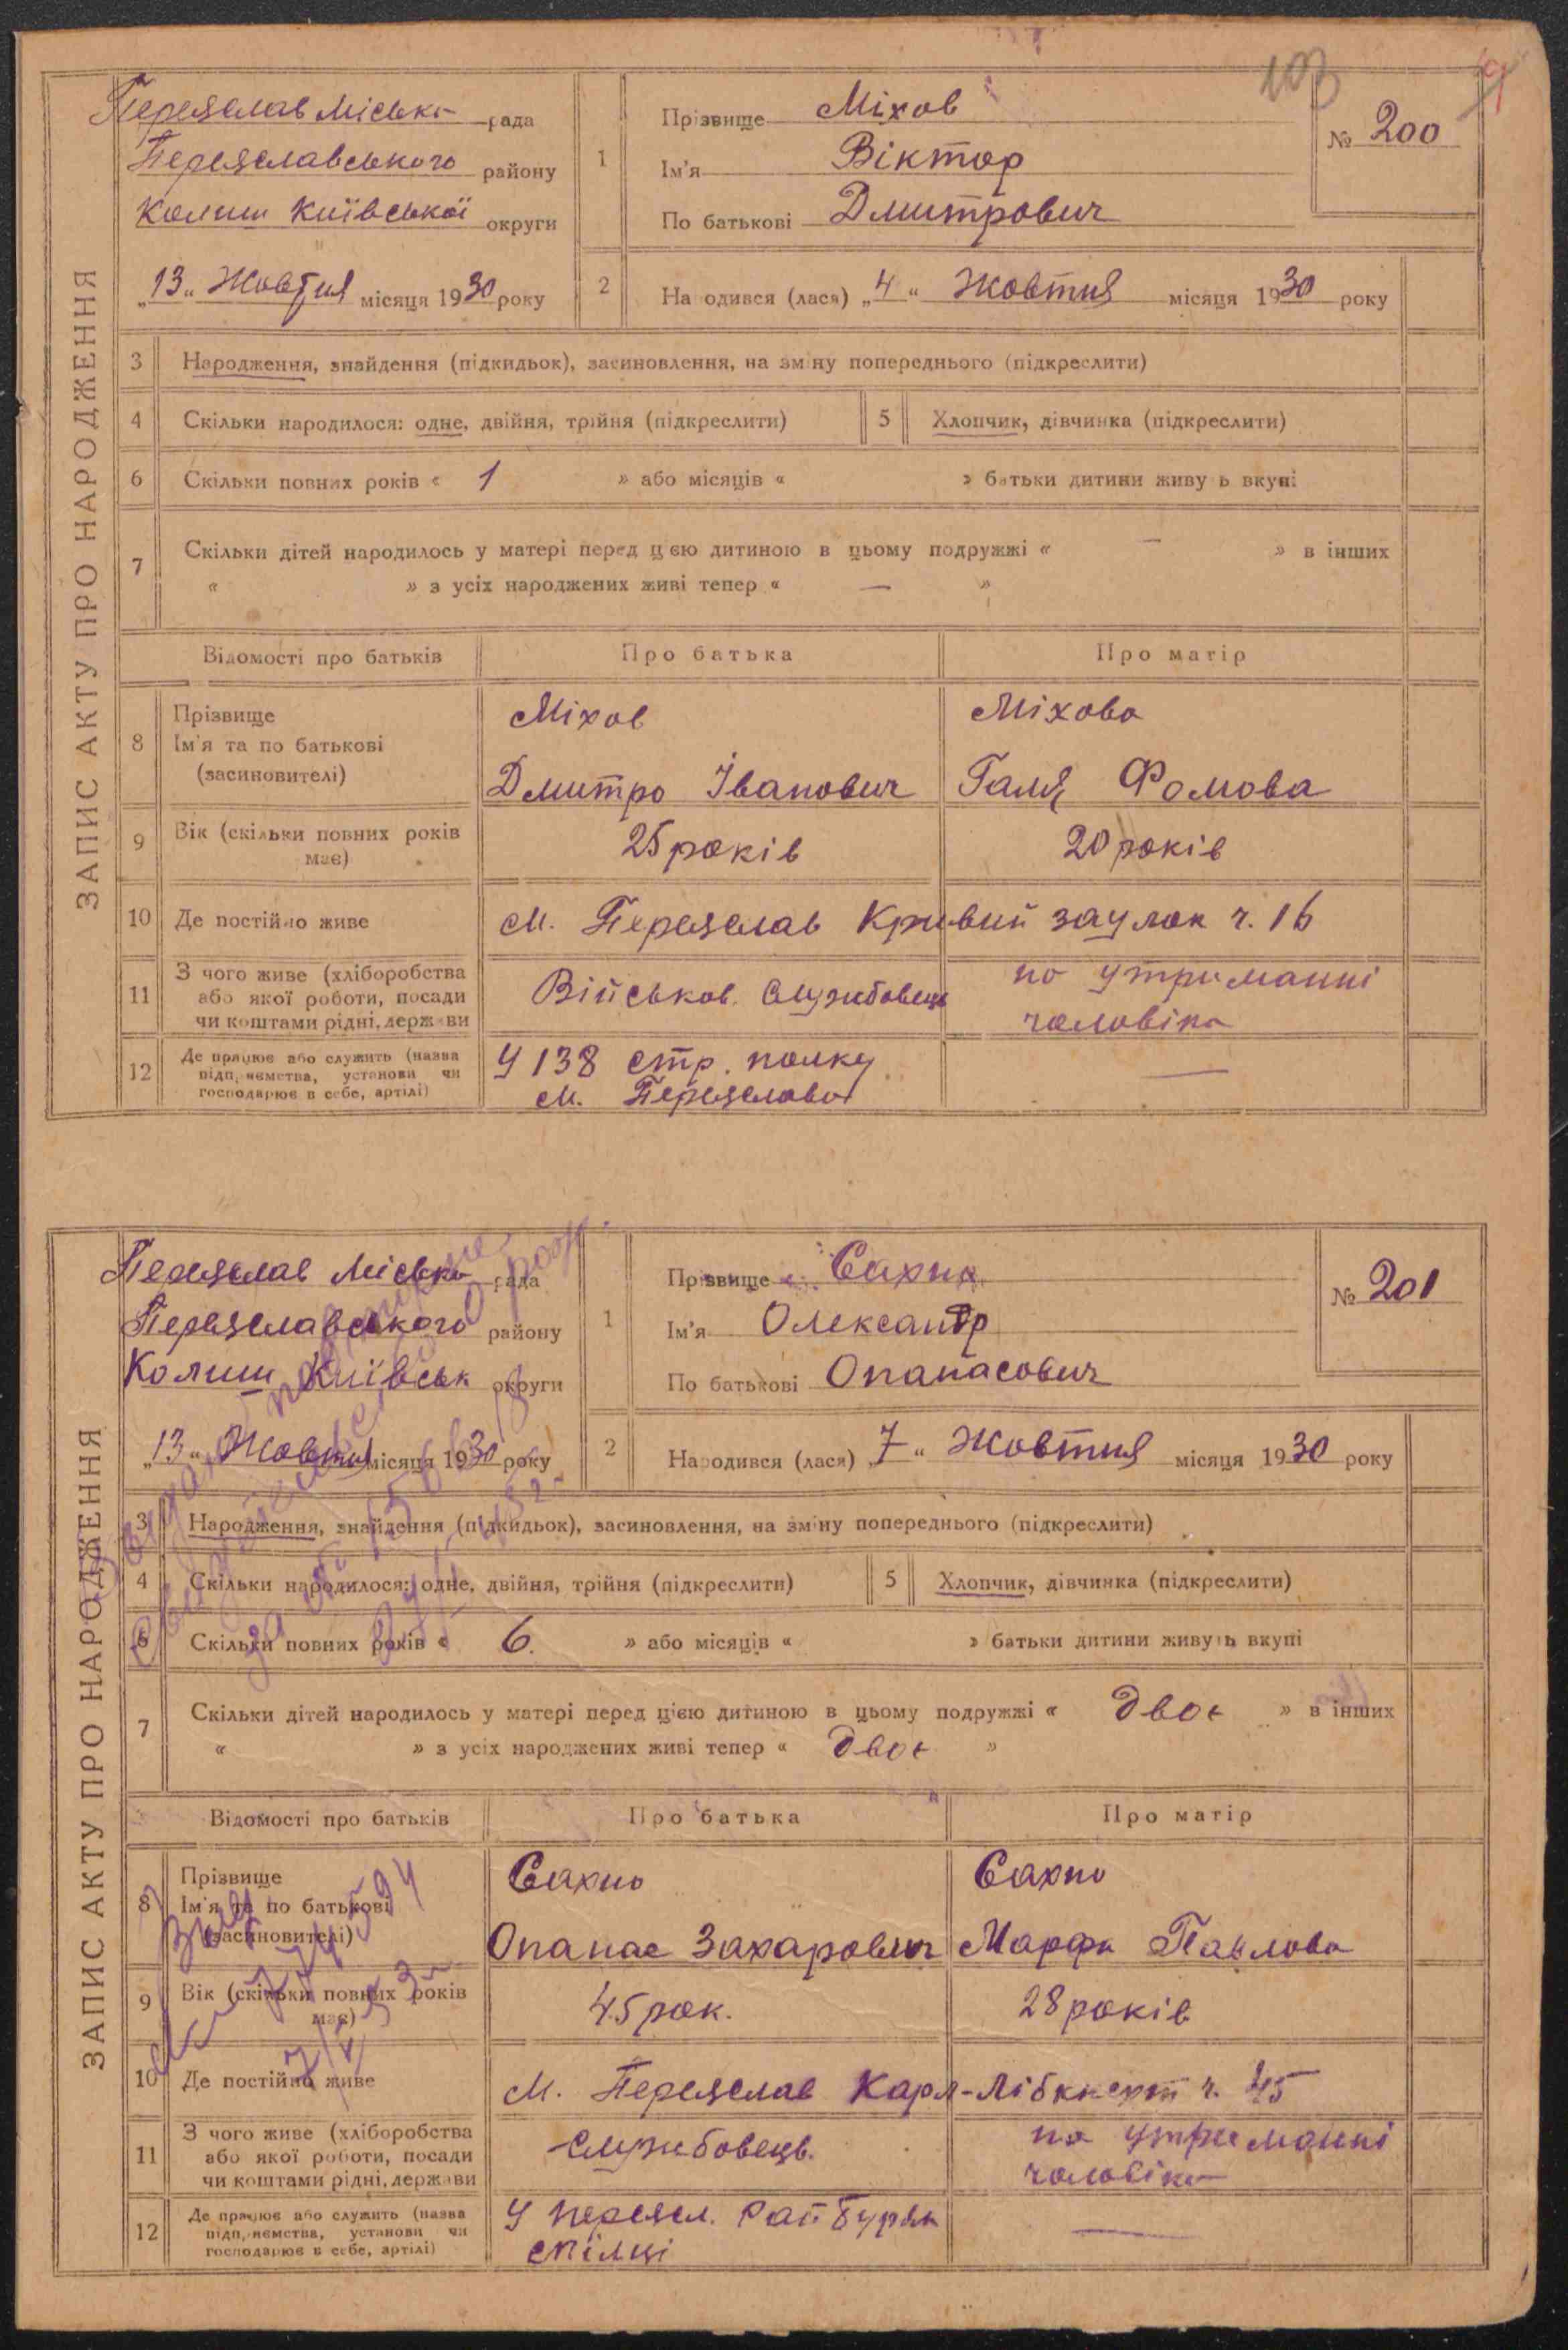 103
ЗАПИС АКТУ ПРО НАРОДЖЕННЯ
Переяслав Міська рада
Переяславського району
Колиш Київської округи
„13“ Жовтня місяця 1930 року
1
Прізвище Міхов
Ім'я Віктор
По батькові Дмитрович
№ 200
2
На одився (лася) „4“ Жовтня місяця 1930 року
3 Народження, знайдення (підкидьок), засиновлення, на зміну попереднього (підкреслити)
4 Скільки народилося: одне, двійня, трійня (підкреслити) 5 Хлопчик, дівчинка (підкреслити)
6 Скільки повних років « 1 » або місяців « » батьки дитини живу ь вкупі
7 Скільки дітей народилось у матері перед цією дитиною в цьому подружжі « — » в інших
« » з усіх народжених живі тепер « — »
Відомості про батьків Про батька Про матір
8 Прізвище Ім'я та по батькові (засиновителі)
Міхов Міхова
Дмитро Іванович Галя Фомова
9 Вік (скільки повних років має) 25 років 20 років
10 Де постійно живе м. Переяслав Кривий заулок ч. 16
11 З чого живе (хліборобства або якої роботи, посади чи коштами рідні, держави
Військов. Службовець на утриманні чоловіка
12 Де працює або служить (назва підприємства, установи чи господарює в себе, артілі)
У 138 стр. полку —
м. Переяслава
ЗАПИС АКТУ ПРО НАРОДЖЕННЯ
Переяслав Міська рада
Переяславського району
Колиш Київськ округи
„13“ Жовтня місяця 1930 року
1
Прізвище Сахно
Ім'я Олександр
По батькові Опанасович
№ 201
2
Народився (лася) „7“ Жовтня місяця 1930 року
3 Народження, знайдення (підкидьок), засиновлення, на зміну попереднього (підкреслити)
4 Скільки народилося: одне, двійня, трійня (підкреслити) 5 Хлопчик, дівчинка (підкреслити)
6 Скільки повних років « 6. » або місяців « » батьки дитини живуть вкупі
7 Скільки дітей народилось у матері перед цією дитиною в цьому подружжі « двоє » в інших
« » з усіх народжених живі тепер « двоє »
Відомості про батьків Про батька Про матір
8 Прізвище Ім'я та по батькові (засиновителі)
Сахно Сахно
Опанас Захарович Марфа Павлова
9 Вік (скільки повних років має) 45 рок. 28 років
10 Де постійно живе м. Переяслав Карл-Лібкнехт ч. 45
11 З чого живе (хліборобства або якої роботи, посади чи коштами рідні, держави
Службовець. на утриманні чоловіка
12 Де працює або служить (назва підприємства, установи чи господарює в себе, артілі)
У переясл. Рай Буряк —
спілці